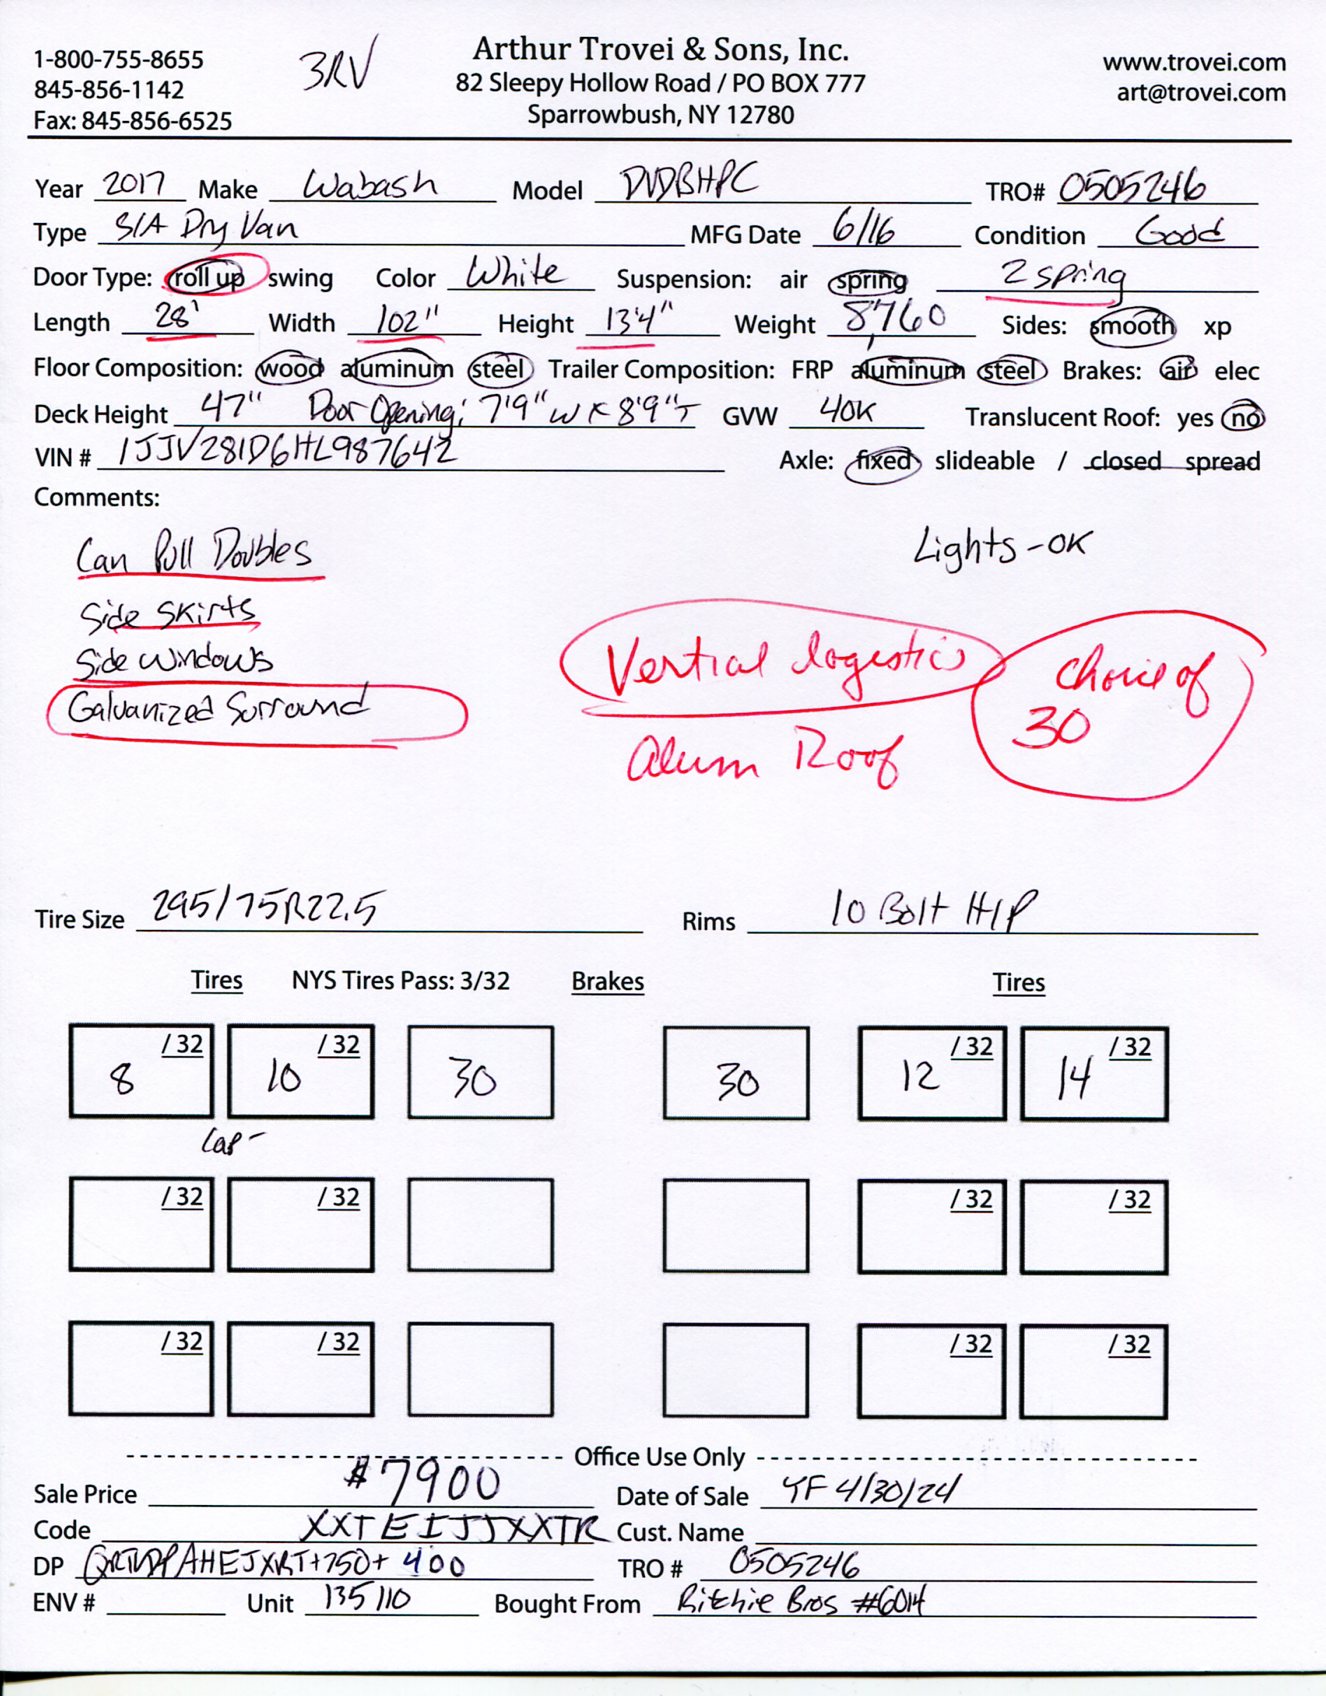 1-800-755-8655
845-856-1142
Fax: 845-856-6525
3RV
Arthur Trovei & Sons, Inc.
82 Sleepy Hollow Road / PO BOX 777
Sparrowbush, NY 12780
www.trovei.com
art@trovei.com
Year 2017 Make Wabash Model DVDBHPC TRO# 0505246
Type S/A Dry Van MFG Date 6/16 Condition Good
Door Type: roll up swing Color White Suspension: air spring 2 spring
Length 28' Width 102" Height 13'4" Weight 8,760 Sides: smooth xp
Floor Composition: wood aluminum steel Trailer Composition: FRP aluminum steel Brakes: air elec
Deck Height 47" Door Opening: 7'9" W x 8'9" T GVW 40K Translucent Roof: yes no
VIN # 1JJV281D6HL987642 Axle: fixed slideable / closed spread
Comments:
Can Pull Doubles
Lights-OK
Side Skirts
Side Windows
Galvanized Surround
Vertial logestics
Choice of
30
Alum Roof
Tire Size 295/75R22.5 Rims 10 Bolt H/P
Tires NYS Tires Pass: 3/32 Brakes Tires
8 /32 10 /32 30 30 12 /32 14 /32
Cap-
/32 /32 /32 /32
/32 /32 /32 /32
Office Use Only
Sale Price $7900 Date of Sale YF 4/30/24
Code XXTEIJJXXTR Cust. Name
DP +750+ 400 TRO # 0505246
ENV # Unit 135110 Bought From Ritchie Bros #6014